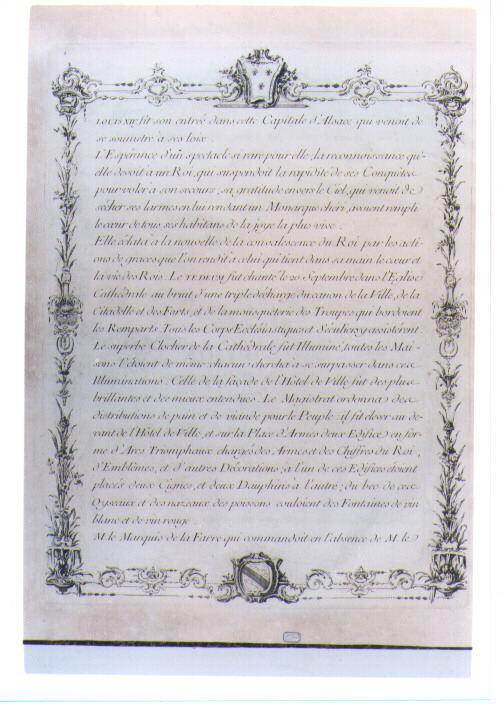 LOUIS XIV. fit son entrée dans cette Capitale d'Alsace qui venoit de
se soumetre à ses loix.
L'Espérance d'un spectacle si rare pour elle, la reconnoissance qu'-
elle devoit à un Roi, qui suspendoit la rapidité de ses Conquêtes
pour voler à son secours, sa gratitude envers le Ciel, qui venoit de
sécher ses larmes en lui rendant un Monarque chéri, avoient rempli
le cœur de tous ses habitans de la joye la plus vive.
Elle éclata à la nouvelle de la convalescence du Roi par les acti-
ons de graces que l'on rendit à celui qui tient dans sa main le cœur et
la vie des Rois. Le TE DEUM fut chanté le 20 Septembre dans l'Eglise
Cathédrale au bruit d'une triple décharge du canon de la Ville, de la
Citadelle et des Forts, et de la mousqueterie des Troupes qui bordoient
les Remparts. Tous les Corps Ecclésiastiques et Séculiers y assistérent.
Le superbe Clocher de la Cathédrale fut Illuminé, toutes les Mai-
sons l'étoient de même chacun cherchà à se surpasser dans ces
Illuminations. Celle de la façade de l'Hôtel de Ville fut des plus
brillantes et des mieux entendues. Le Magistrat ordonna des
distributions de pain et de viande pour le Peuple, il fit élever au de-
vant de l'Hôtel de Ville, et sur la Place d'Armes deux Edifices en for-
me d'Arcs Triomphaux chargés des Armes et des Chiffres du Roi,
d'Emblêmes, et d'autres Décorations, à l'un de ces Edifices étoient
placés deux Cignes, et deux Dauphins à l'autre; du bec de ces
Oyseaux et des nazeaux des poissons couloient des Fontaines de vin
blanc et de vin rouge.
M. le Marquis de la Farre qui commandoit en l'absence de M. le